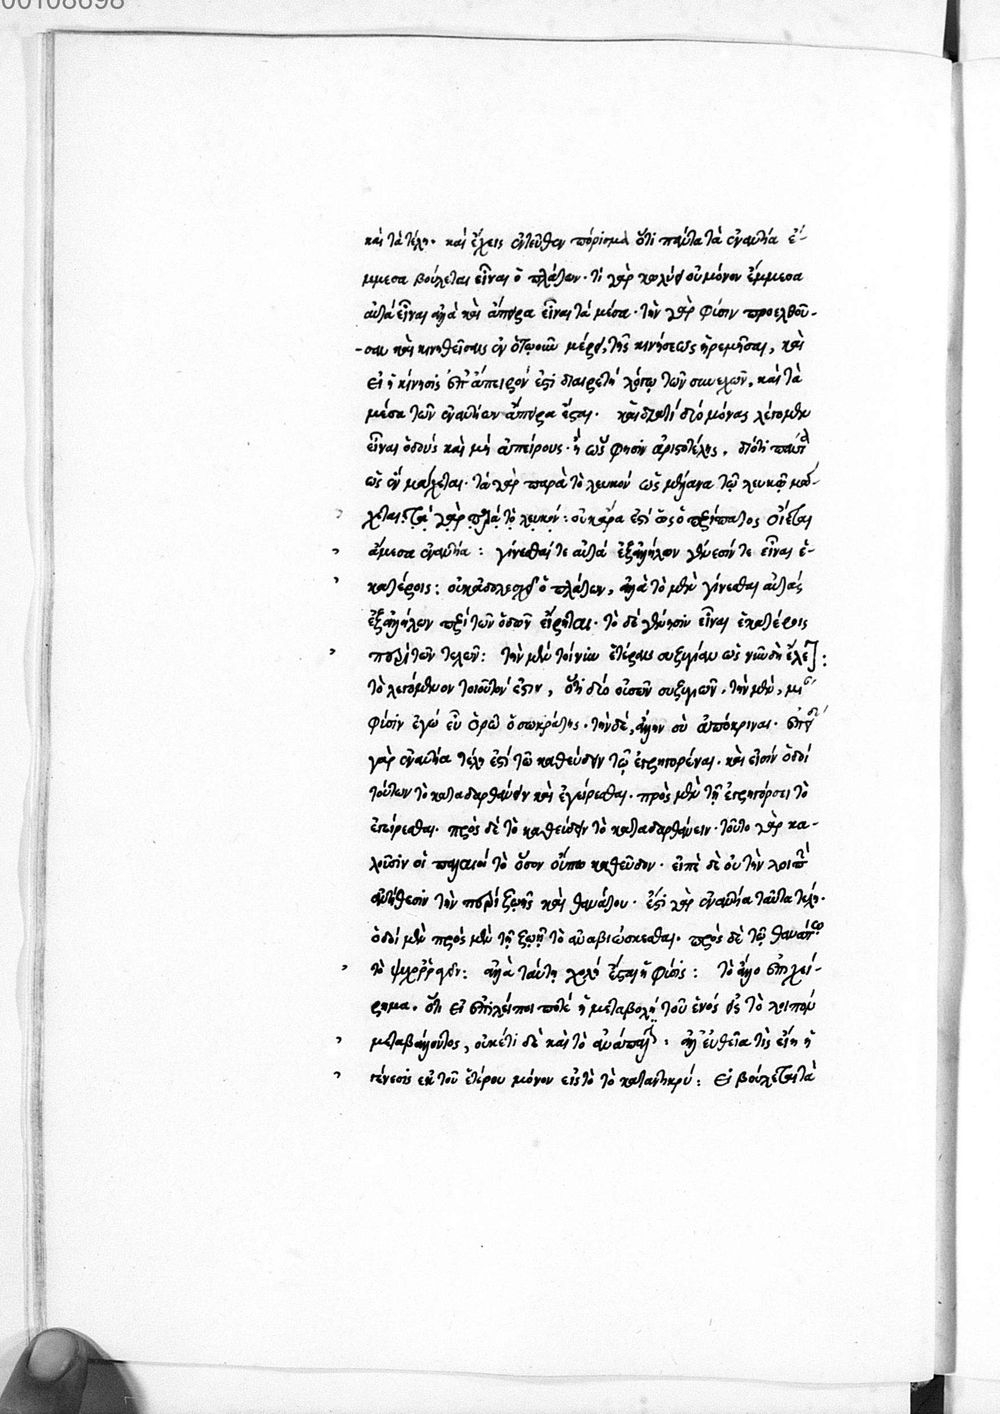 00108698
καὶ τὰ τέλη. καὶ ἔχεις ἐντεῦθεν πόρισμα ὅτι πάντα τὰ ἐναντία ἔ-
μμεσα βούλεται εἶναι ὁ πλάτων. τί γὰρ κωλύει οὐ μόνον ἔμμεσα
αὐτὰ εἶναι ἀλλὰ καὶ ἄπειρα εἶναι τὰ μέσα. τὴν γὰρ φύσιν προελθοῦ-
-σαν καὶ κινηθεῖσαν ἐν ὁτῳοῦν μέρει τῆς κινήσεως ἠρεμῆσαι, καὶ
εἰ ἡ κίνησις ἐπ' ἄπειρόν ἐστι διαιρετὴ λόγῳ τῶν συνεχῶν, καὶ τὰ
μέσα τῶν ἐναντίων ἄπειρα ἔσται. καὶ διατί δύο μόνας λέγομεν
εἶναι ὁδοὺς καὶ μὴ ἀπείρους. ἢ ὥς φησὶν ἀριστοτέλης, διότι πάντα
ὡς ἓν μάχεται. τὰ γὰρ παρὰ τὸ λευκὸν ὡς μέλανα τῷ λευκῷ μά-
χεται. τὰ γὰρ παρὰ τὸ λευκόν: οὐκ ἄρα ἐστί ὡς ὁ περίπατος οἴεται
ἄμεσα ἐναντία: γίνεσθαί τε αὐτὰ ἐξ ἀλλήλων γένεσίν τε εἶναι ἑ-
κατέροις: οὐκ ἀδολεσχεῖ ὁ πλάτων, ἀλλὰ τὸ μὲν γίνεσθαι αὐτὰς
ἐξ ἀλλήλων περὶ τῶν ὁδῶν εἴρηται. τὸ δὲ γένεσιν εἶναι ἑκατέροις
περὶ τῶν τελῶν: τὴν μὲν τοίνυν ἑτέραν συζυγίαν ὡς νῦν δὴ ἔλεγον:
τὸ λεγόμενον τοιοῦτόν ἐστιν, ὅτι δύο οὐσῶν συζυγιῶν, τὴν μὲν, μί
φύσιν ἐγὼ εὖ ὁρῶ ὁ σωκράτης. τὴν δὲ, ἄλλην σὺ ἀπόκριναι. ἐπεὶ
γὰρ ἐναντία τέλη ἐστὶ τῶ καθεύδειν τῷ ἐγρηγορέναι. καί εἰσιν ὁδοὶ
τούτων τὸ καταδαρθάνειν καὶ ἐγείρεσθαι. πρὸς μὲν τῇ ἐγρηγόρσει τὸ
ἐγείρεσθαι. πρὸς δὲ τὸ καθεύδειν τὸ καταδαρθάνειν. τοῦτο γὰρ κα-
λοῦσιν οἱ παλαιοὶ τὸ ὅσον οὔπω καθεῦδον. εἰπὲ δὲ σὺ τὴν λοιπὴν
ἀντίθεσιν τὴν περὶ ζωῆς καὶ θανάτου. ἐστὶ γὰρ ἐναντία ταῦτα τέλη.
ὁδοὶ μὲν πρὸς μὲν τῇ ζωῇ τὸ ἀναβιώσκεσθαι. πρὸς δὲ τῷ θανάτῳ
τὸ ψυχορραγεῖν: ἀλλὰ ταύτῃ χωλὴ ἔσται ἡ φύσις: τὸ ἄλλο ἐπιχεί-
ρημα. ὅτι εἰ ἐπιλείποι ποτὲ ἡ μεταβολὴ τοῦ ἑνὸς εἰς τὸ λοιπὸν
μεταβάλλοντος, οὐκέτι δὲ καὶ τὸ ἀνάπαλιν: ἀλλ' εὐθεῖα τὶς εἴη ἡ
γένεσις ἐκ τοῦ ἑτέρου μόνον εἰς τὸ τὸ καταντικρύ: εἰ βούλεται τὰ